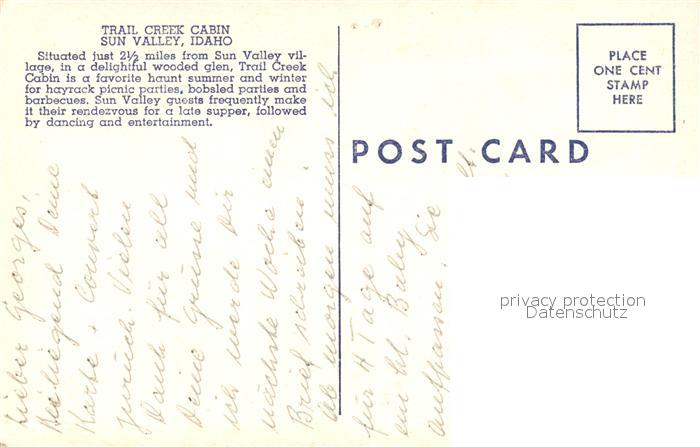 TRAIL CREEK CABIN
SUN VALLEY, IDAHO
Situated just 2½ miles from Sun Valley vil-
lage, in a delightful wooded glen, Trail Creek
Cabin is a favorite haunt summer and winter
for hayrack picnic parties, bobsled parties and
barbecues. Sun Valley guests frequently make
it their rendezvous for a late supper, followed
by dancing and entertainment.
PLACE
ONE CENT
STAMP
HERE
POST CARD
Lieber Georges,
Beiliegend Deine
Karte + Couvert
zurück. Vielen
Dank für all
Deine Grüsse und
ich werde Dir
nächste Woche einen
Brief schreiben.
Ab morgen muss ich
für 4 Tage auf
ein kl. Baby
aufpassen. Sie
privacy protection
Datenschutz